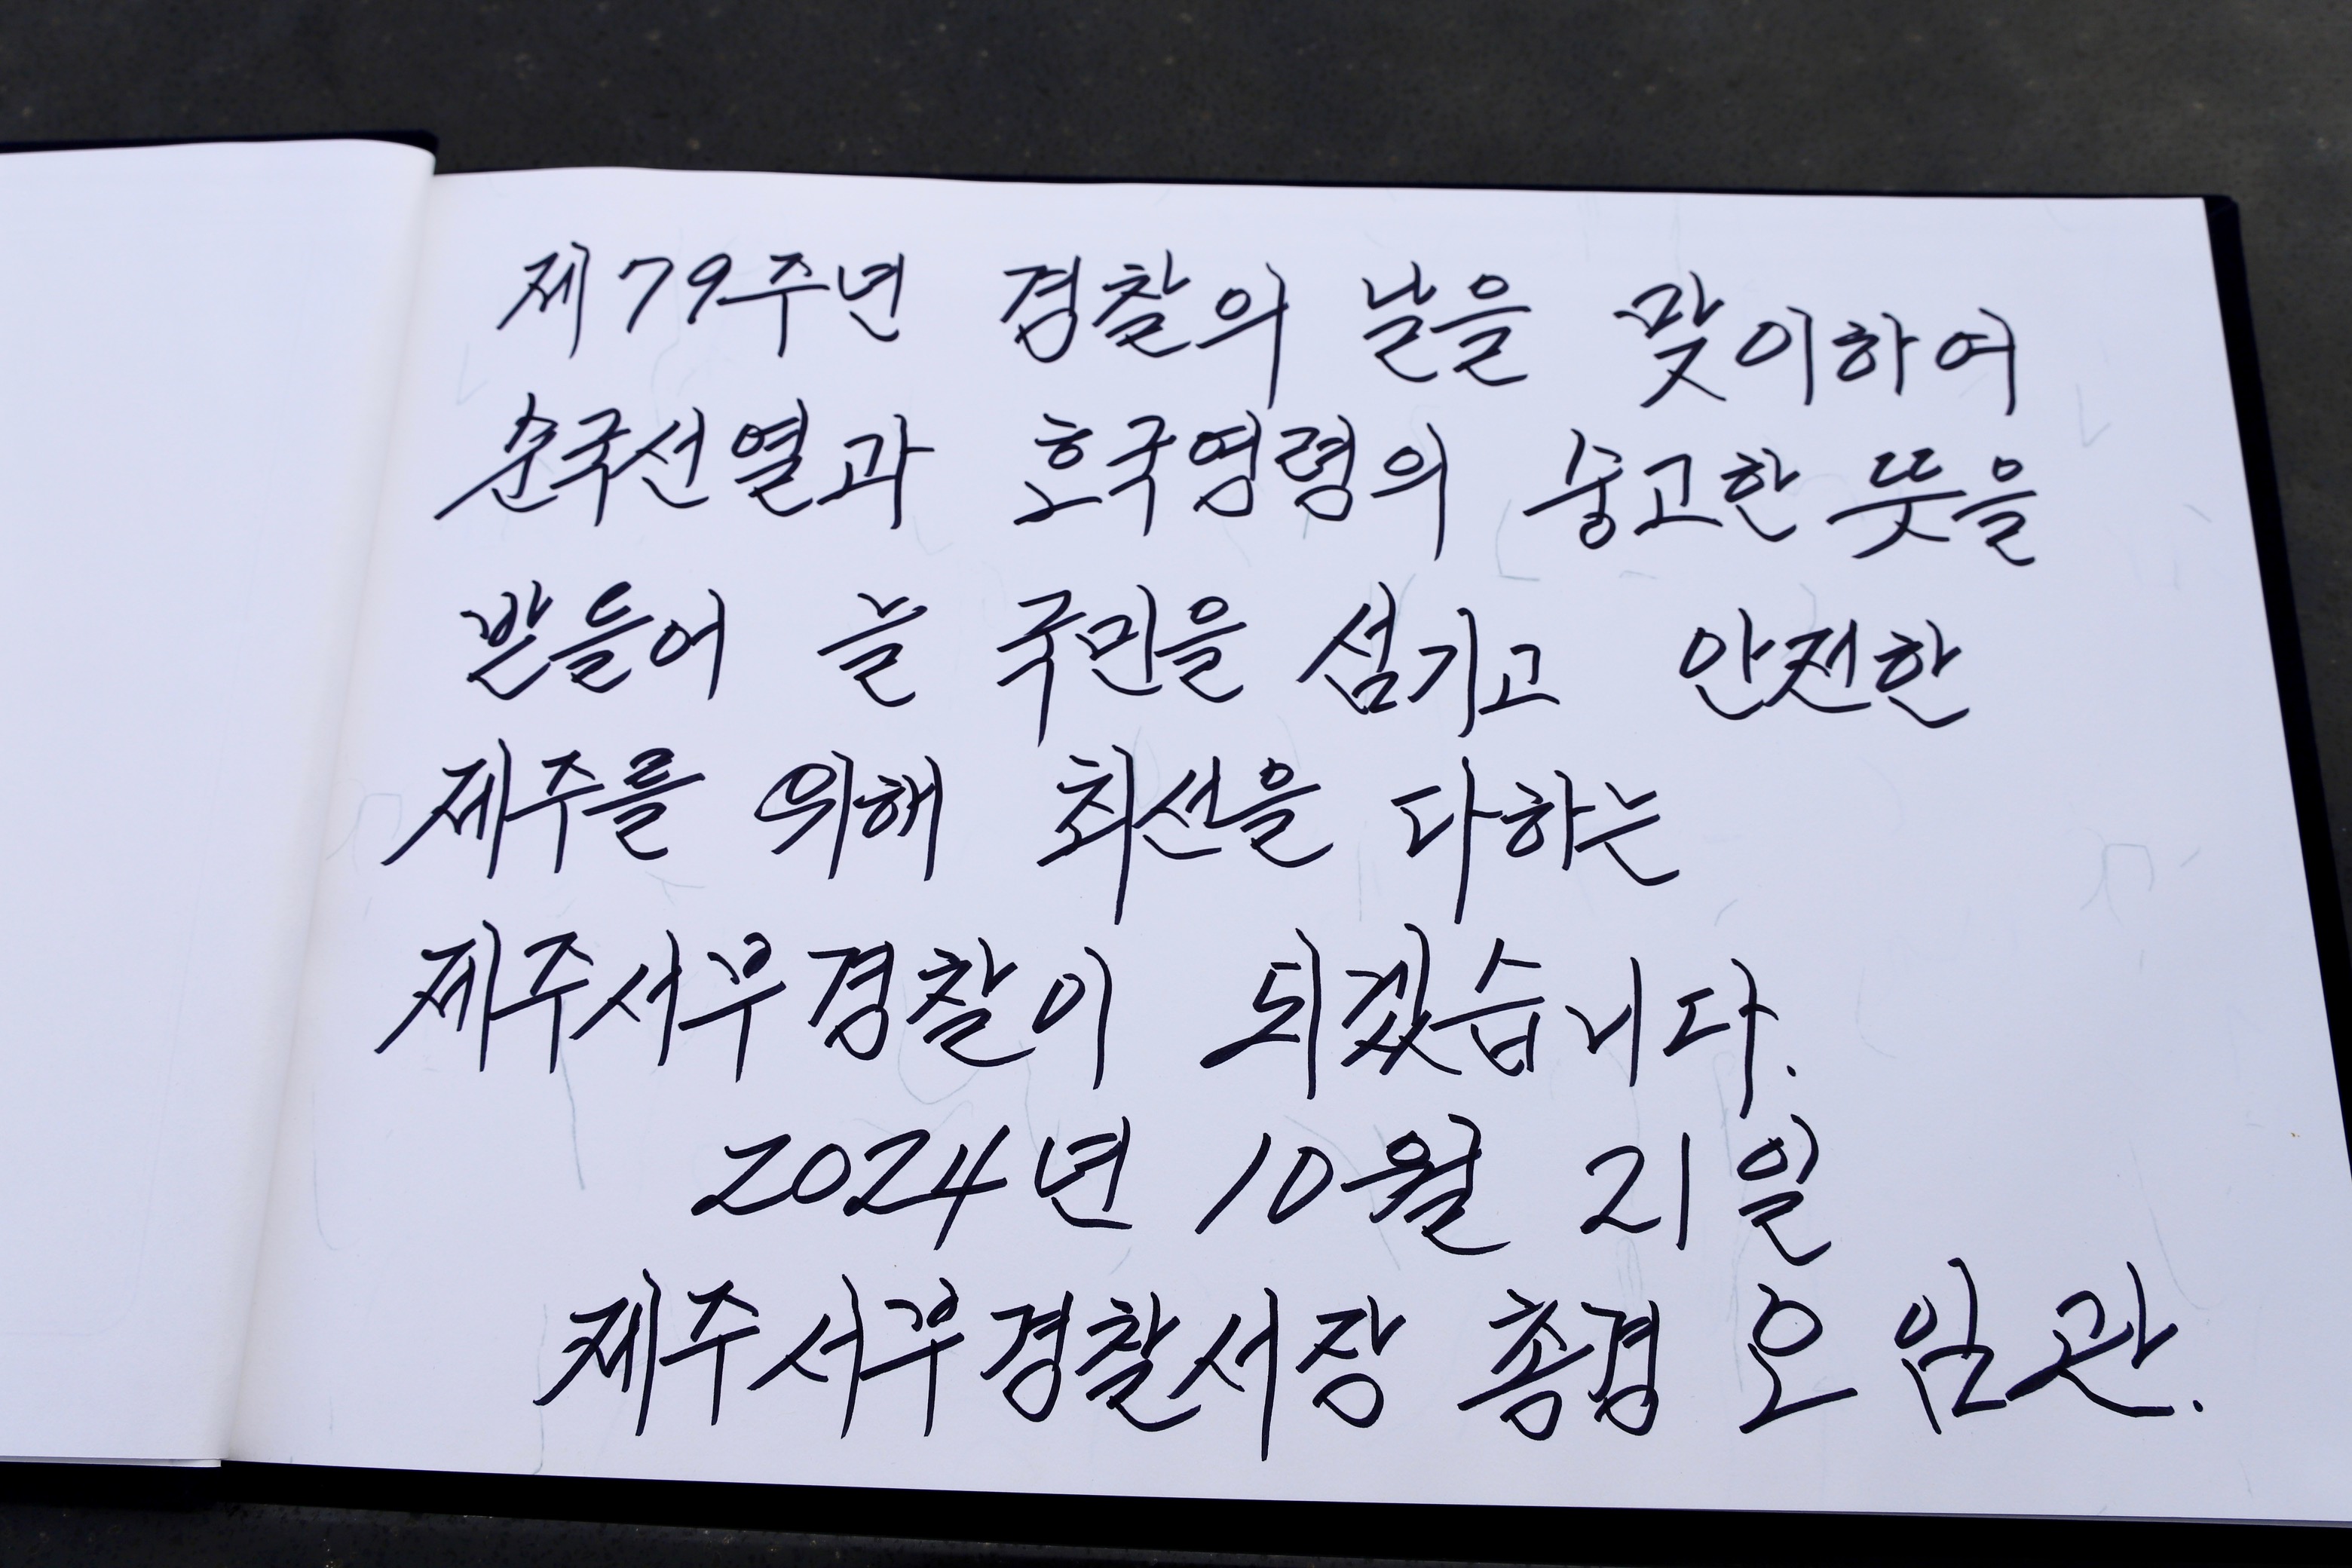 제79주년 경찰의 날을 맞이하여
순국선열과 호국영령의 숭고한 뜻을
받들어 늘 국민을 섬기고 안전한
제주를 위해 최선을 다하는
제주서부경찰이 되겠습니다.
2024년 10월 21일
제주서부경찰서장 총경 오 임 관.